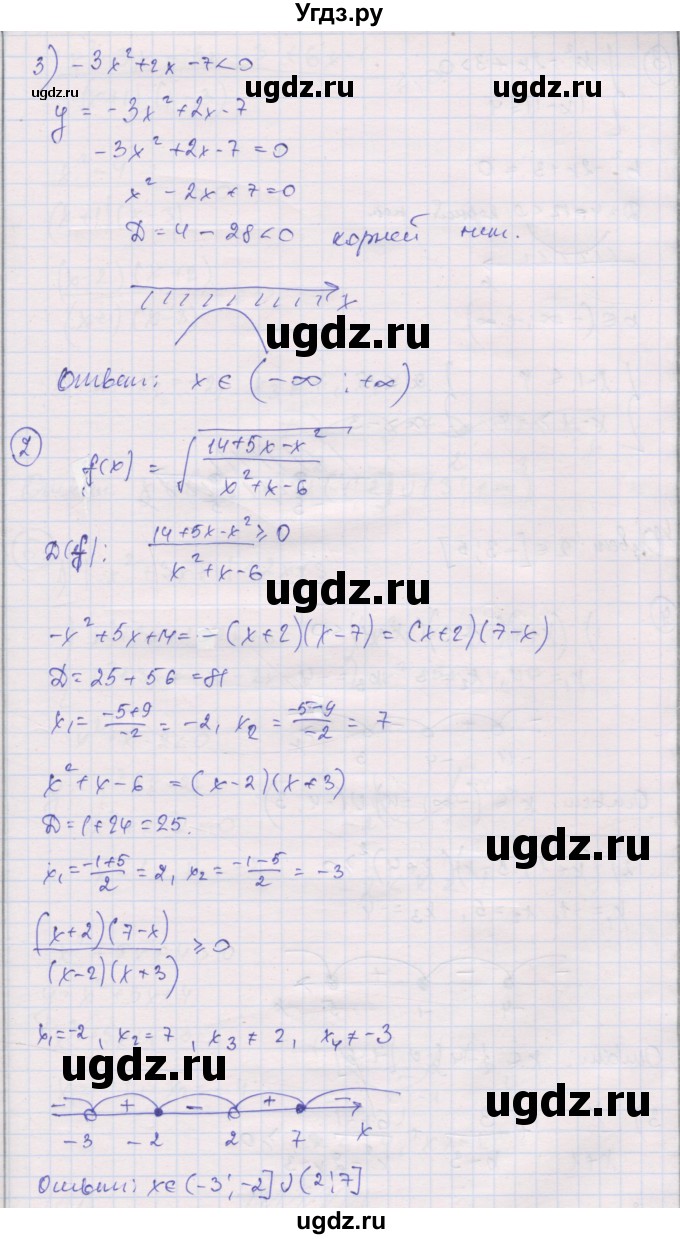 Угдз.ру
3) -3x²+2x-7<0
ugdz.ru
ugdz.ru
ugdz.ru
y = -3x²+2x-7
-3x²+2x-7=0
x²-2x+7=0
D=4-28<0 корней нет.
x
ugdz.ru
Ответ: x∈(-∞;+∞)
2
f(x) = √((14+5x-x²)/(x²+x-6))
D(f): (14+5x-x²)/(x²+x-6) ≥0
ugdz.ru
-x²+5x+14=-(x+2)(x-7)=(x+2)(7-x)
D=25+56=81
x₁=(-5+9)/(-2)=-2, x₂=(-5-9)/(-2)=7
x²+x-6=(x-2)(x+3)
D=1+24=25.
ugdz.ru
x₁=(-1+5)/2=2, x₂=(-1-5)/2=-3
((x+2)(7-x))/((x-2)(x+3)) ≥0
ugdz.ru
x₁=-2, x₂=7, x₃≠2, x₄≠-3
ugdz.ru
ugdz.ru
- + - + -
-3 -2 2 7 x
Ответ: x∈(-3;-2]∪(2;7]
ugdz.ru